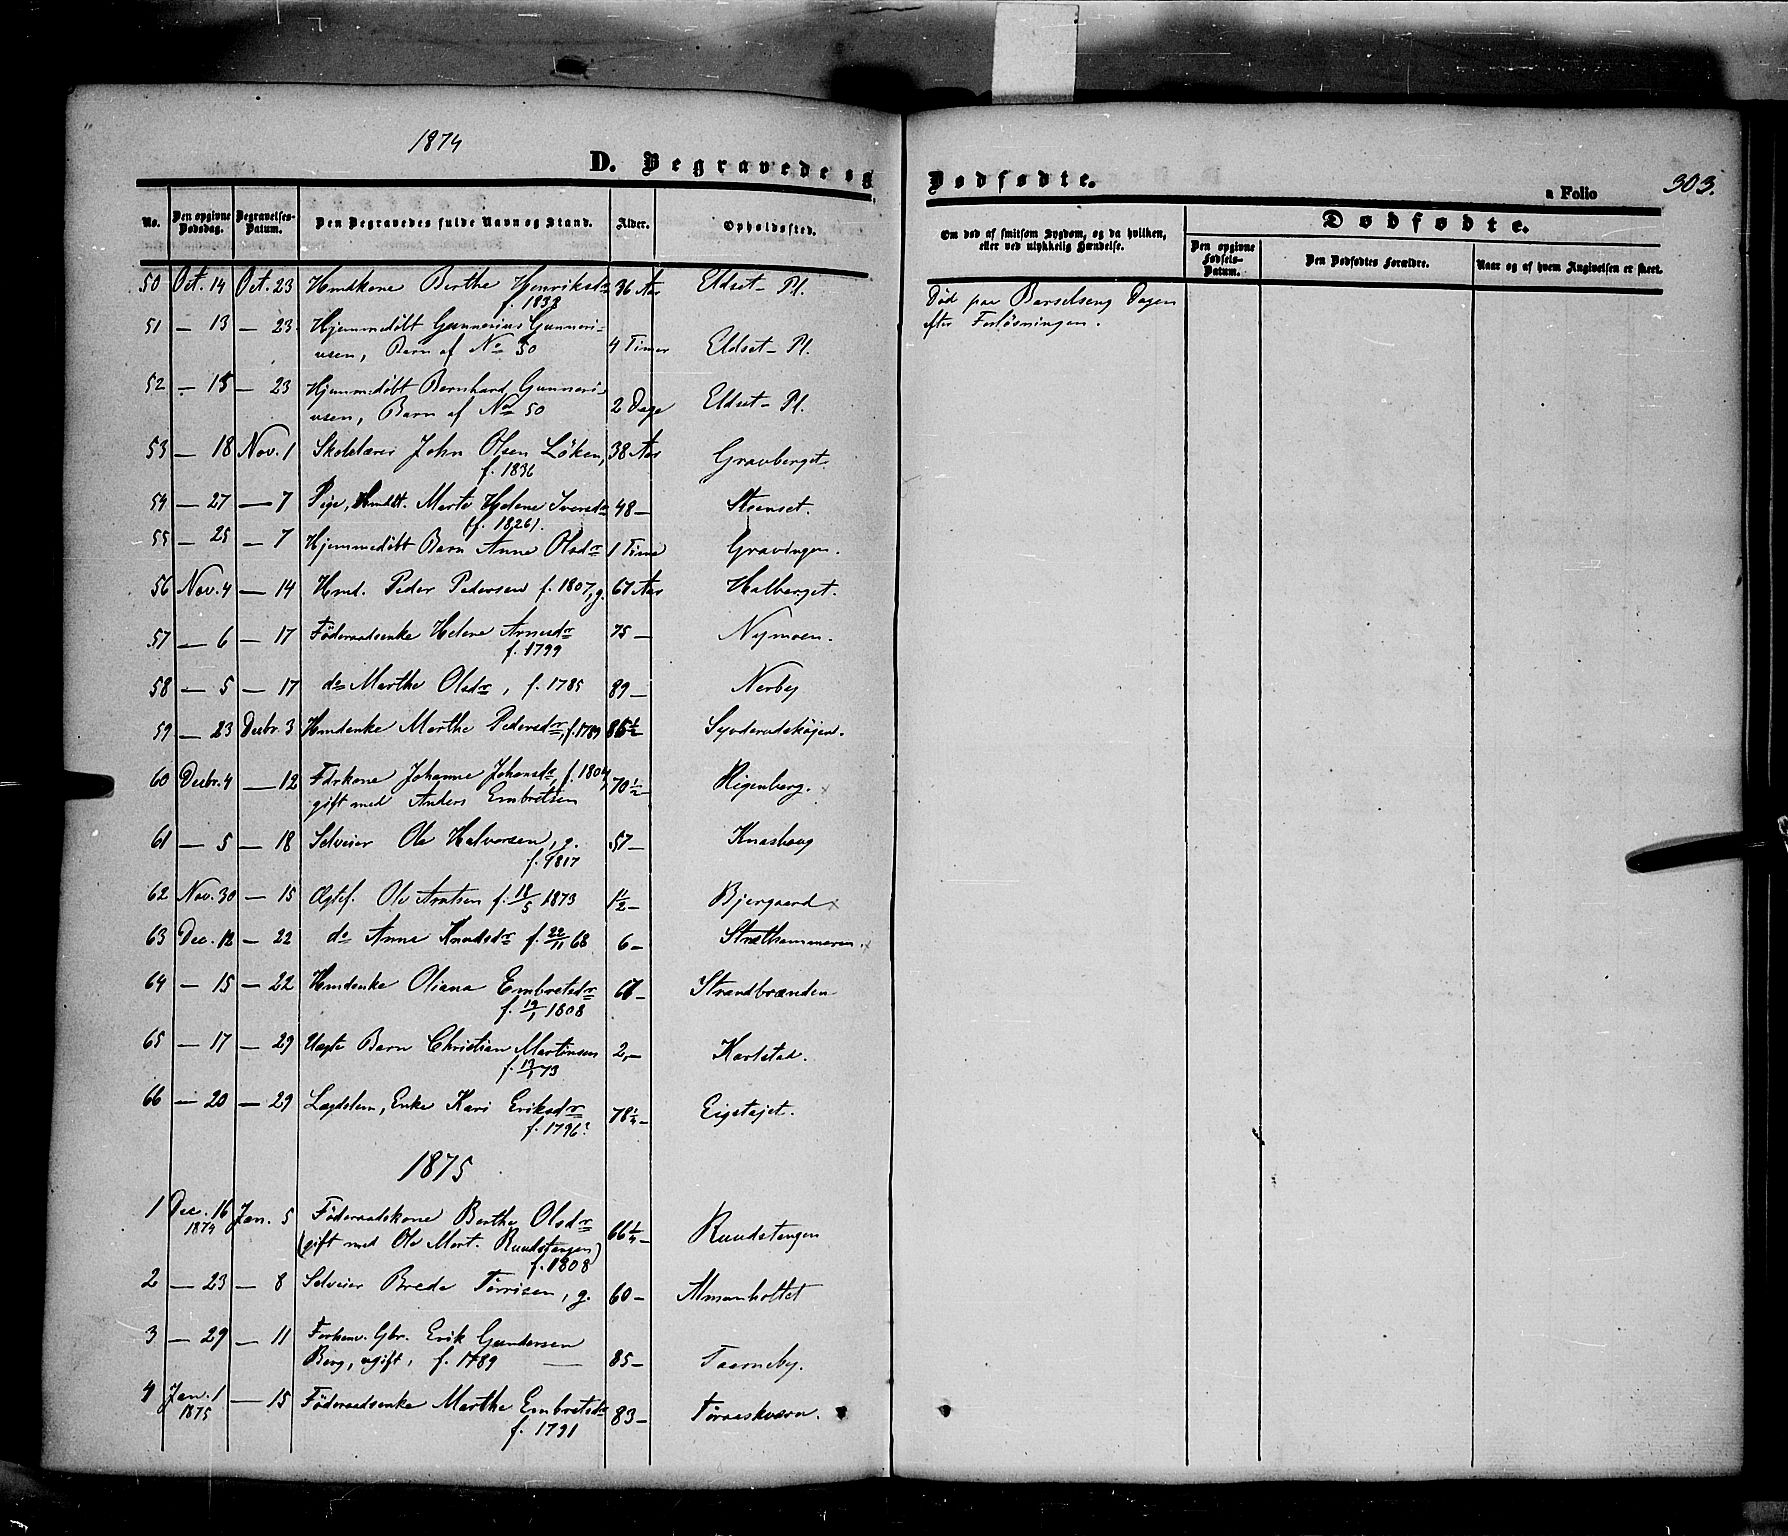 1874
D. Begravede og Dødfødte.
a Folio 303.
No. Den opgivne Dødsdag. Begravelses-Datum. Den Begravedes fulde Navn og Stand. Alder. Opholdssted. Om død af smitsom Sygdom, og da hvilken, eller ved ulykkelig Hændelse. Dødfødte.
Den opgivne Fødsels-Datum. Den Dødfødtes Forældre. Naar og af hvem Angivelsen er skeet.
50 Oct. 14 Oct. 23 Hmdkone Berthe Henriksdr 36 Aar Eldset-Pl. Død paa Barselseng Dagen
f. 1838 efter Forløsningen.
51 — 13 — 23 Hjemmedøbt Gunnerius Gunneri-
usen, Barn af No 50 4 Timer Eldset-Pl.
52 — 15 — 23 Hjemmedøbt Bernhard Gunneri-
usen, Barn af No 50 2 Dage Eldset-Pl.
53 — 18 Nov. 1 Skolelærer John Olsen Løken, 38 Aar Gravberget.
f. 1836
54 — 27 — 7 Pige, Marte Helene Iversdr 48 — Steenset.
(f. 1826).
55 — 25 — 7 Hjemmedøbt Barn Anne Olsdr 1 Time Gravingen.
56 Nov. 4 — 14 Hmd. Peder Pedersen f. 1807, g. 67 Aar Halberget.
57 — 6 — 17 Föderaadsenke Helene Arnesdr 75 — Nymoen.
f. 1799
58 — 5 — 17 do Marthe Olsdr, f. 1785 89 — Nerby
59 — 23 Decbr. 3 Hmdenke Marthe Pedersdr, f. 1789 85½
60 Decbr. 4 — 12 Fdrkone Johanne Johansdr, f. 1804, 70½ Rigenberg.
gift med Anders Embretsen
61 — 5 — 18 Selveier Ole Halvorsen, g. 57 — Knashoug
f. 1817
62 Nov. 30 — 15 Ægtef. Ole Arntsen f. 18/5 1873 1½ — Bjergaard
63 Dec. 12 — 22 do Anne Knudsdr f. 22/11 68 6 — Stræthammeren.
64 — 15 — 22 Hmdenke Oliana Embretsdr 67 — Strandbrænden
f. 19/1 1808
65 — 17 — 29 Uægte Barn Christian Martinsen 2 — Karlstad.
f. 13/1 73
66 — 20 — 29 Lægdslem, Enke Kari Eriksdr 78¼ — Eigstøjet.
f. 1796?
1875
1 Dec. 16 Jan. 5 Föderaadskone Berthe Olsdr 66¼ — Ruudstangen
1874 (gift med Ole Mort. Ruudstangen)
f. 1808
2 — 23 — 8 Selveier Brede Tørrisen, g. 60 — Almanholtet
3 — 29 — 11 Forhenv. Gbr. Erik Gundersen
Berg, ugift, f. 1789 85 — Taarneby.
4 Jan. 1 — 15 Föderaadsenke Marthe Embretsdr 83 — Tøraaskværn.
1875 f. 1791